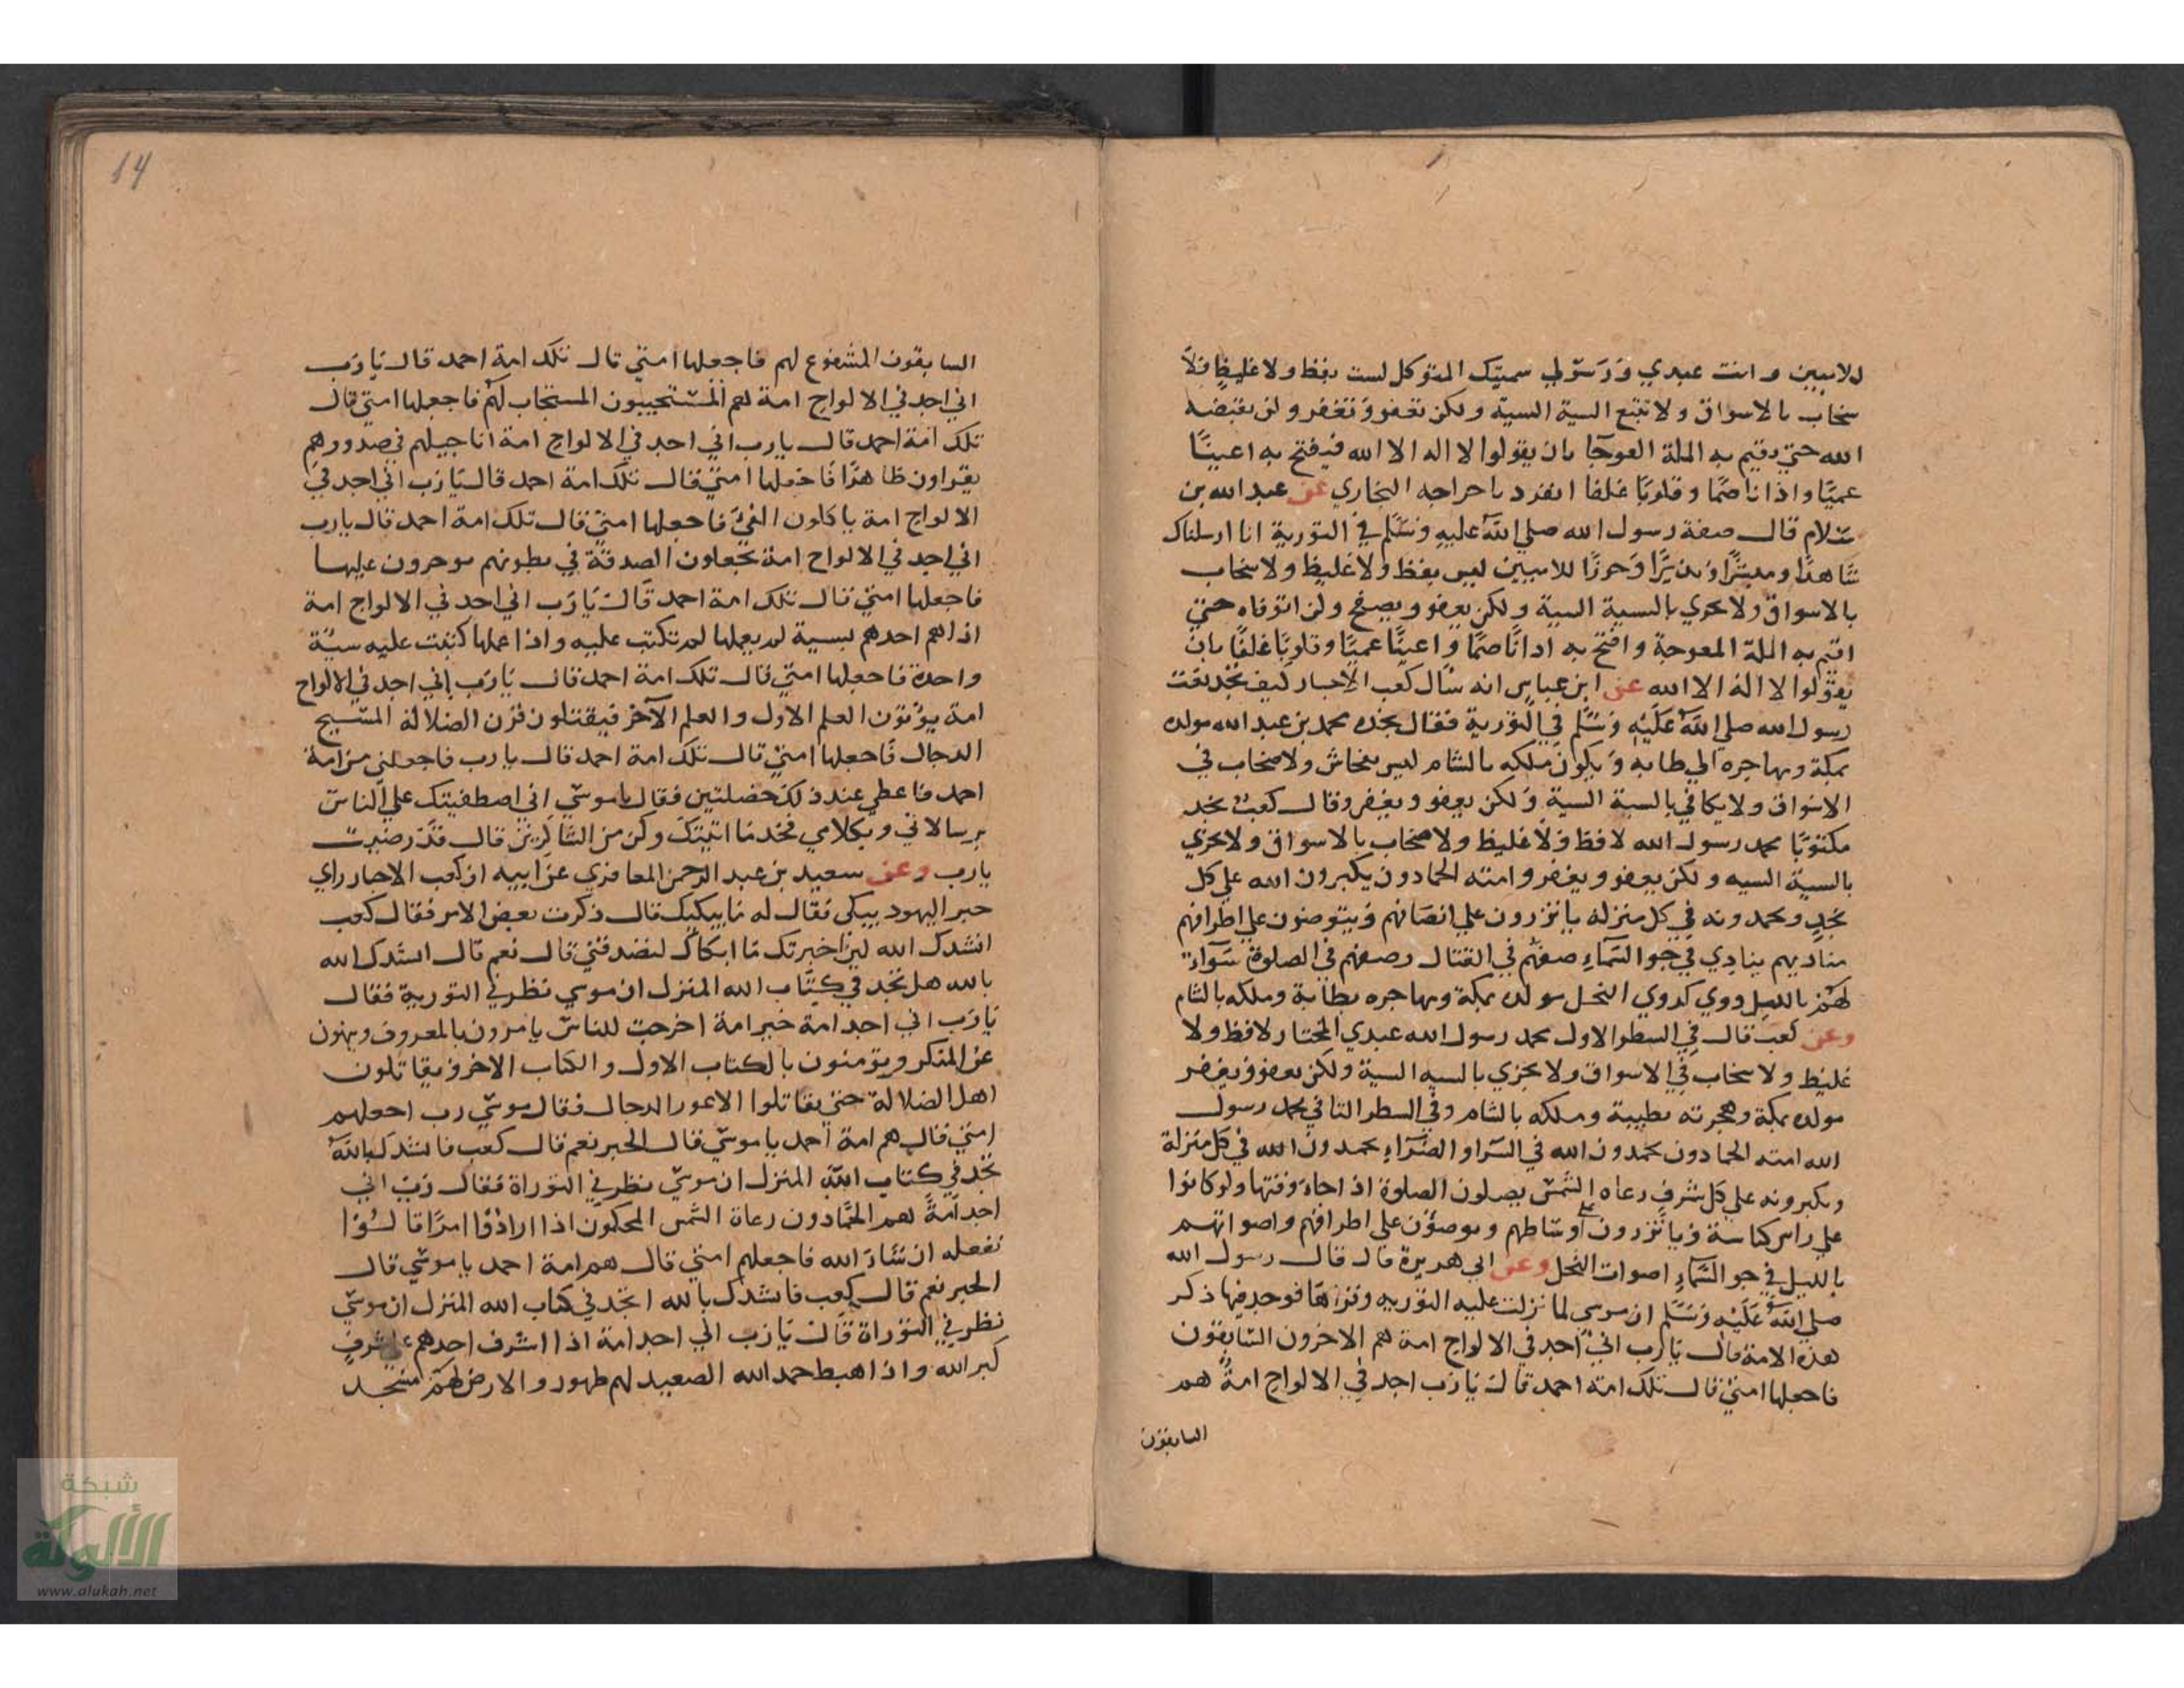 للاميين وانت عبدي ورسولي سميتك المتوكل لست بفظ ولا غليظ ولا
سخاب بالاسواق ولا تتبع السية السية ولكن تعفو وتغفر ولن يقبضه
الله حتي يقيم به الملة العوجا بان يقولوا لا اله الا الله فيفتح به اعينًا
عميًا واذانا صمًا وقلوبًا غلفا انفرد باخراجه البخاري عن عبد الله بن
سلام قال صفة رسول الله صلي الله عليه وسلم في التورية انا ارسلناك
شاهدًا ومبشرًا ونذيرًا وحرزًا للاميين ليس بفظ ولا غليظ ولا سخاب
بالاسواق ولا يجزي بالسية السية ولكن يعفو ويصفح ولن اتوفاه حتي
اقيم به الملة المعوجة وافتح به اذانًا صمًا واعينًا عميًا وقلوبًا غلفًا بان
يقولوا لا اله الا الله عن ابن عباس انه سال كعب الاحبار كيف تجد نعت
رسول الله صلي الله عليه وسلم في التورية فقال نجده محمد بن عبد الله مولده
بمكة ومهاجره الي طابه ويكون ملكه بالشام ليس بفحاش ولا صخاب في
الاسواق ولا يكافي بالسية السية ولكن يعفو ويغفر وقال كعب نجد
مكتوبًا محمد رسول الله لا فظ ولا غليظ ولا صخاب بالاسواق ولا يجزي
بالسية السيه ولكن يعفو ويغفر وامته الحمادون يكبرون الله علي كل
نجد ويحمدونه في كل منزله ياتزرون علي انصافهم ويتوضون علي اطرافهم
مناديهم ينادي في جو السماء صفهم في القتال وصفهم في الصلوة سواء
لهم بالليل دوي كدوي النحل مولده بمكة ومهاجره بطابة وملكه بالشام
وعن كعب قال في السطر الاول محمد رسول الله عبدي المختار لا فظ ولا
غليظ ولا سخاب في الاسواق ولا يجزي بالسيه السية ولكن يعفو ويغفر
مولده بمكة وهجرته بطيبة وملكه بالشام وفي السطر الثاني محمد رسول
الله امته الحمادون يحمدون الله في السرا والضراء يحمدون الله في كل منزلة
ويكبرونه علي كل شرف رعاه الشمس يصلون الصلوة اذا جاء وقتها ولو كانوا
علي راس كناسة وياتزرون علي اوساطهم ويوضؤن علي اطرافهم واصواتهم
بالليل في جو السماء اصوات النحل وعن ابي هريرة قال قال رسول الله
صلي الله عليه وسلم ان موسي لما نزلت عليه التوريه وقراها فوجد فيها ذكر
هذه الامة قال يارب اني اجد في الالواح امة هم الاخرون السابقون
فاجعلها امتي قال تلك امة احمد قال يارب اجد في الالواح امة هم
السابقون
14
السابقون المشفوع لهم فاجعلها امتي قال تلك امة احمد قال يارب
اني اجد في الالواح امة هم المستجيبون المستجاب لهم فاجعلها امتي قال
تلك امة احمد قال يارب اني اجد في الالواح امة اناجيلهم في صدورهم
يقراون ظاهرًا فاجعلها امتي قال تلك امة احمد قال يارب اني اجد في
الالواح امة ياكلون الفيء فاجعلها امتي قال تلك امة احمد قال يارب
اني اجد في الالواح امة يجعلون الصدقة في بطونهم يوجرون عليها
فاجعلها امتي قال تلك امة احمد قال يارب اني اجد في الالواح امة
اذا هم احدهم بسية لم يعملها لم تكتب عليه واذا عملها كتبت عليه سية
واحدة فاجعلها امتي قال تلك امة احمد قال يارب اني اجد في الالواح
امة يوتون العلم الاول والعلم الآخر فيقتلون قرن الضلالة المسيح
الدجال فاجعلها امتي قال تلك امة احمد قال يارب فاجعلني من امة
احمد فاعطي عند ذلك خصلتين فقال ياموسي اني اصطفيتك علي الناس
برسالاتي وبكلامي فخذ ما اتيتك وكن من الشاكرين قال قد رضيت
يارب وعن سعيد بن عبد الرحمن المعافري عن ابيه ان كعب الاحبار راي
حبر اليهود يبكي فقال له ما يبكيك قال ذكرت بعض الامر فقال كعب
انشدك الله لين اخبرتك ما ابكاك لتصدقني قال نعم قال انشدك الله
بالله هل تجد في كتاب الله المنزل ان موسي نظر في التورية فقال
يارب اني اجد امة خير امة اخرجت للناس يامرون بالمعروف وينهون
عن المنكر ويومنون بالكتاب الاول والكتاب الاخر ويقاتلون
اهل الضلالة حتي يقاتلوا الاعور الدجال فقال موسي رب اجعلهم
امتي قال هم امة احمد ياموسي قال الحبر نعم قال كعب فانشدك بالله
تجد في كتاب الله المنزل ان موسي نظر في التوراة فقال رب اني
اجد امة هم الحمادون رعاة الشمس المحكمون اذا ارادوا امرًا قالوا
نفعله ان شاء الله فاجعلهم امتي قال هم امة احمد ياموسي قال
الحبر نعم قال كعب فانشدك بالله اتجد في كتاب الله المنزل ان موسي
نظر في التوراة قال يارب اني اجد امة اذا اشرف احدهم علي شرف
كبر الله واذا هبط حمد الله الصعيد لهم طهور والارض لهم مسجد
شبكة
الألوكة
www.alukah.net